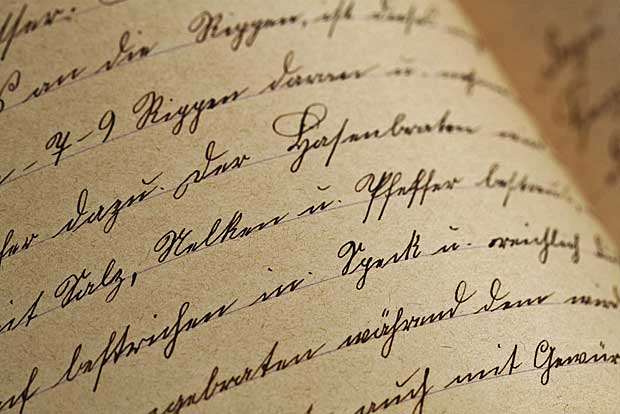 an die Rippen, ist dieses
- 7 - 9 Rippen daran u.
dazu. Der Hasenbraten
mit Salz, Nelken u. Pfeffer bestreut,
bestrichen in Speck u. reichlich
gebraten während dem wird
auch mit Gewür